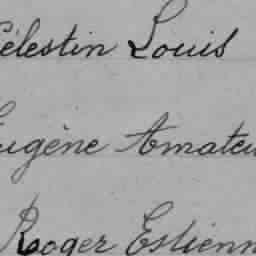 Célestin Louis
Eugène Amateu
Roger Estienn